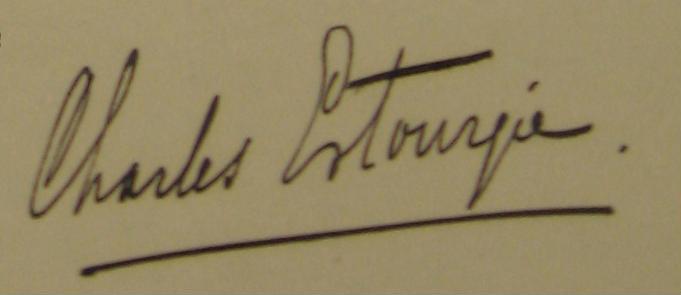 Charles Estourgie.